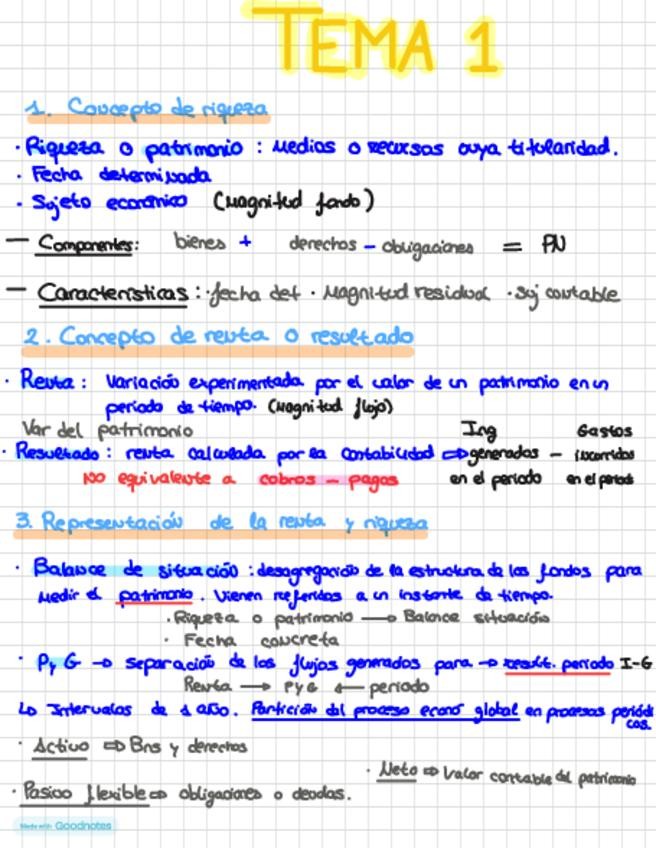 TEMA 1
1. Concepto de riqueza
· Riqueza o patrimonio : Medios o recursos cuya titularidad.
· Fecha determinada
· Sujeto económico (Magnitud fondo)
— Componentes: bienes + derechos - obligaciones = PN
— Características : · fecha det · Magnitud residual · Suj contable
2. Concepto de renta o resultado
· Renta : Variación experimentada por el valor de un patrimonio en un
periodo de tiempo. (Magnitud flujo)
Var del patrimonio Ing Gastos
· Resultado : renta calculada por la Contabilidad ⇨ generados - incurridos
NO equivalente a cobros - pagos en el periodo en el periodo
3. Representación de la renta y riqueza
· Balance de situación : desagregación de la estructura de los fondos para
medir el patrimonio. Vienen referidos a un instante de tiempo.
· Riqueza o patrimonio → Balance situación
· Fecha concreta
· P y G → separación de los flujos generados para → result. periodo I-G
Renta → P y G ← periodo
↳ Intervalos de 1 año. Partición del proceso econó global en procesos periódi
cos.
· Activo ⇨ Bns y derechos
· Neto ⇨ Valor contable del patrimonio
· Pasivo flexible ⇨ obligaciones o deudas.
Made with Goodnotes